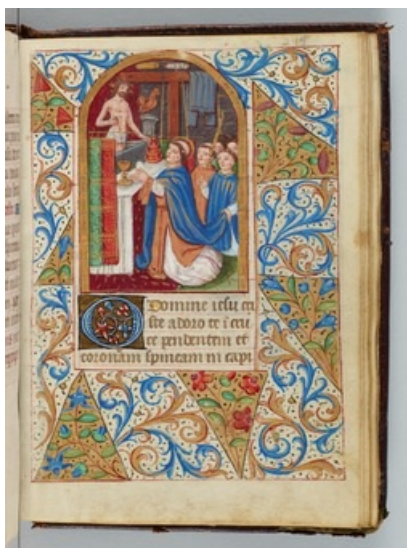 O Domine iesu cri
ste adoro te i cru
ce pendentem et
coronam spineam in capi